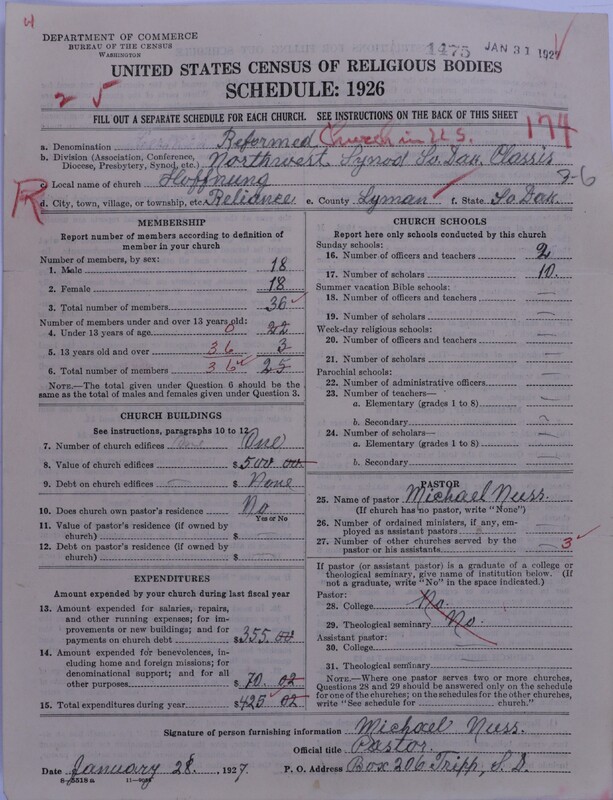 DEPARTMENT OF COMMERCE
BUREAU OF THE CENSUS
WASHINGTON
1475 JAN 31 1927
UNITED STATES CENSUS OF RELIGIOUS BODIES
SCHEDULE: 1926
FILL OUT A SEPARATE SCHEDULE FOR EACH CHURCH. SEE INSTRUCTIONS ON THE BACK OF THIS SHEET
174
a. Denomination Reformed Church in U.S.
b. Division (Association, Conference, Diocese, Presbytery, Synod, etc.) Northwest Synod So. Dak. Classis
c. Local name of church Hoffnung
d. City, town, village, or township, etc. Reliance e. County Lyman f. State So. Dak.
MEMBERSHIP
Report number of members according to definition of
member in your church
Number of members, by sex:
1. Male 18
2. Female 18
3. Total number of members 36
Number of members under and over 13 years old:
4. Under 13 years of age 0 22
5. 13 years old and over 36 3
6. Total number of members 36 25
NOTE.—The total given under Question 6 should be the
same as the total of males and females given under Question 3.
CHURCH BUILDINGS
See instructions, paragraphs 10 to 12
7. Number of church edifices One
8. Value of church edifices $ 500 00
9. Debt on church edifices $ None
10. Does church own pastor's residence? No
Yes or No
11. Value of pastor's residence (if owned by
church) $
12. Debt on pastor's residence (if owned by
church) $
EXPENDITURES
Amount expended by your church during last fiscal year
13. Amount expended for salaries, repairs,
and other running expenses; for im-
provements or new buildings; and for
payments on church debt $ 355.00
14. Amount expended for benevolences,
including home and foreign missions; for
denominational support; and for all
other purposes $ 70.02
15. Total expenditures during year $ 425 02
CHURCH SCHOOLS
Report here only schools conducted by this church
Sunday schools:
16. Number of officers and teachers 2
17. Number of scholars 10
Summer vacation Bible schools:
18. Number of officers and teachers
19. Number of scholars
Week-day religious schools:
20. Number of officers and teachers
21. Number of scholars
Parochial schools:
22. Number of administrative officers
23. Number of teachers—
a. Elementary (grades 1 to 8)
b. Secondary
24. Number of scholars—
a. Elementary (grades 1 to 8)
b. Secondary
PASTOR
25. Name of pastor Michael Nuss.
(If church has no pastor, write "None")
26. Number of ordained ministers, if any, em-
ployed as assistant pastors
27. Number of other churches served by the
pastor or his assistants 3
If pastor (or assistant pastor) is a graduate of a college or
theological seminary, give name of institution below. (If
not a graduate, write "No" in the space indicated.)
Pastor:
28. College No.
29. Theological seminary No.
Assistant pastor:
30. College
31. Theological seminary
NOTE.—Where one pastor serves two or more churches,
Questions 28 and 29 should be answered only on the schedule
for one of the churches; on the schedules for the other churches,
write "See schedule for church."
Signature of person furnishing information Michael Nuss.
Official title Pastor.
Date January 28, 1927 P. O. Address Box 206 Tripp, S. D.